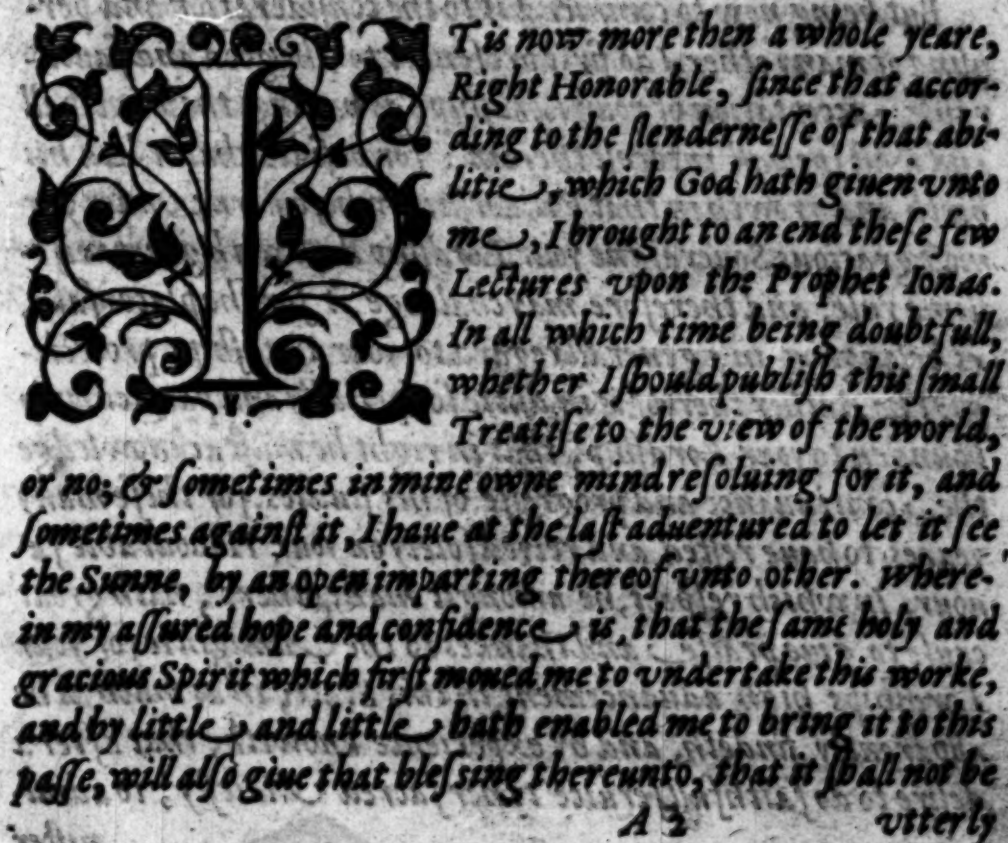 IT is now more then a whole yeare,
Right Honorable, ſince that accor-
ding to the ſlenderneſſe of that abi-
litie, which God hath giuen vnto
me, I brought to an end theſe few
Lectures vpon the Prophet Ionas.
In all which time being doubtfull,
whether I ſhould publiſh this ſmall
Treatiſe to the view of the world,
or no; & ſometimes in mine owne mind reſoluing for it, and
ſometimes againſt it, I haue at the laſt aduentured to let it ſee
the Sunne, by an open imparting thereof vnto other. Where-
in my aſſured hope and confidence is, that the ſame holy and
gracious Spirit which firſt moued me to vndertake this worke,
and by little and little hath enabled me to bring it to this
paſſe, will alſo giue that bleſsing thereunto, that it ſhall not be
A 2 vtterly